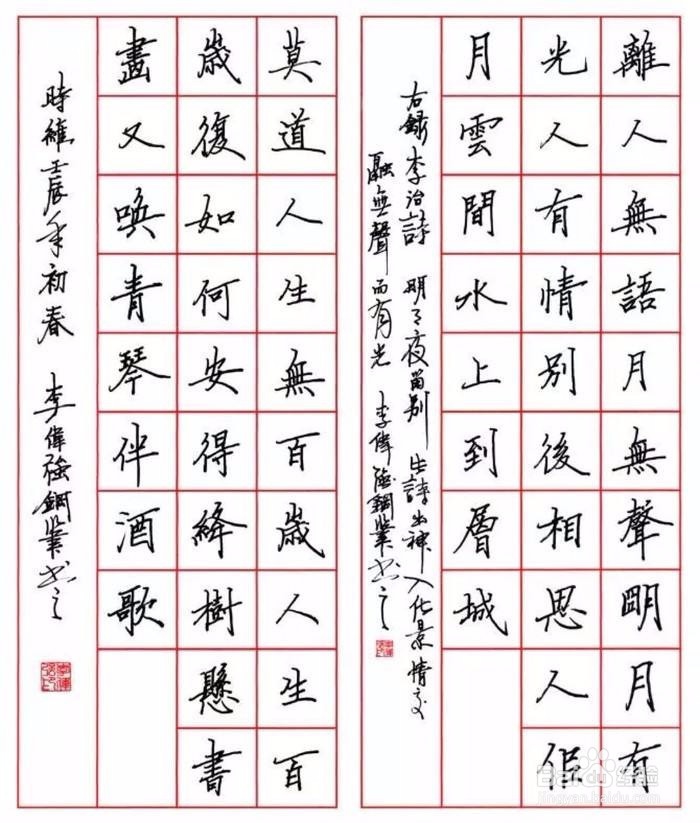 離人無語月無聲明月有
光人有情別後相思人佀
月雲間水上到層城
右録李治詩 明月夜留別 此詩出神入化景情交
融無聲而有光 李偉強鋼筆书之
莫道人生無百歲人生百
歲復如何安得絳樹懸書
畫又喚青琴伴酒歌
時維壬辰年初春 李偉強鋼筆书之
Baidu 经验
jingyan.baidu.com